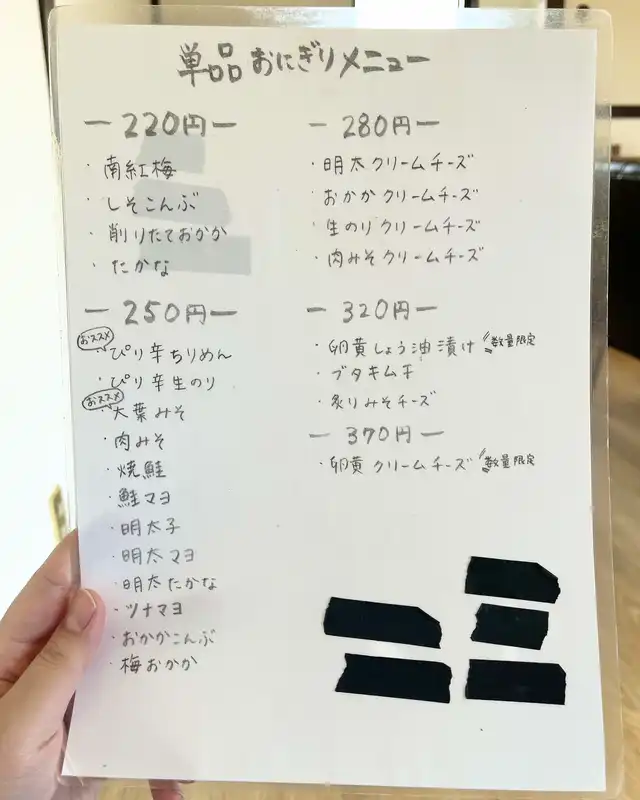 単品おにぎりメニュー
ー 220円 ー
・南紅梅
・しそこんぶ
・削りたておかか
・たかな
ー 250円 ー
おススメ
・ぴり辛ちりめん
・ぴり辛生のり
おススメ
・大葉みそ
・肉みそ
・焼鮭
・鮭マヨ
・明太子
・明太マヨ
・明太たかな
・ツナマヨ
・おかかこんぶ
・梅おかか
ー 280円 ー
・明太クリームチーズ
・おかかクリームチーズ
・生のりクリームチーズ
・肉みそクリームチーズ
ー 320円 ー
・卵黄しょう油漬け 数量限定
・ブタキムチ
・炙りみそチーズ
ー 370円 ー
・卵黄クリームチーズ 数量限定